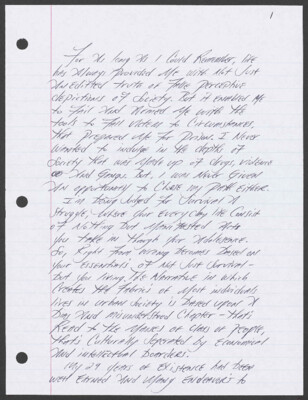 1
For as long as I Could Remember, life
has always provided me with not Just
unedited truth or false perceptive
depictions of Society. But it enabled me
to fail and Armed me with the
tools to fall victim to Circumstances,
that prepared me for Prison. I Never
wanted to indulge in the depths of
Society that was made up of drugs, violence
and gangs. But, I was Never Given
an opportunity to Chase my Path Either.
I'm Being Judged for Survival &
Struggle, where our everyday life Consist
of Nothing But
you take us through your Adolescence.
So, Right from wrong Becomes Based on
your "Essentials", Not Just Survival -
But you bring the Narrative in which
Creates the Fabric of most individuals
lives in urban Society is Based upon a
Dry and misunderstood Chapter - that's
Read to the masses of Class of People,
that's Culturally Separated by Economical
and intellectual Boarders.
My 29 years of Existence has been
well Earned and many Endeavors to